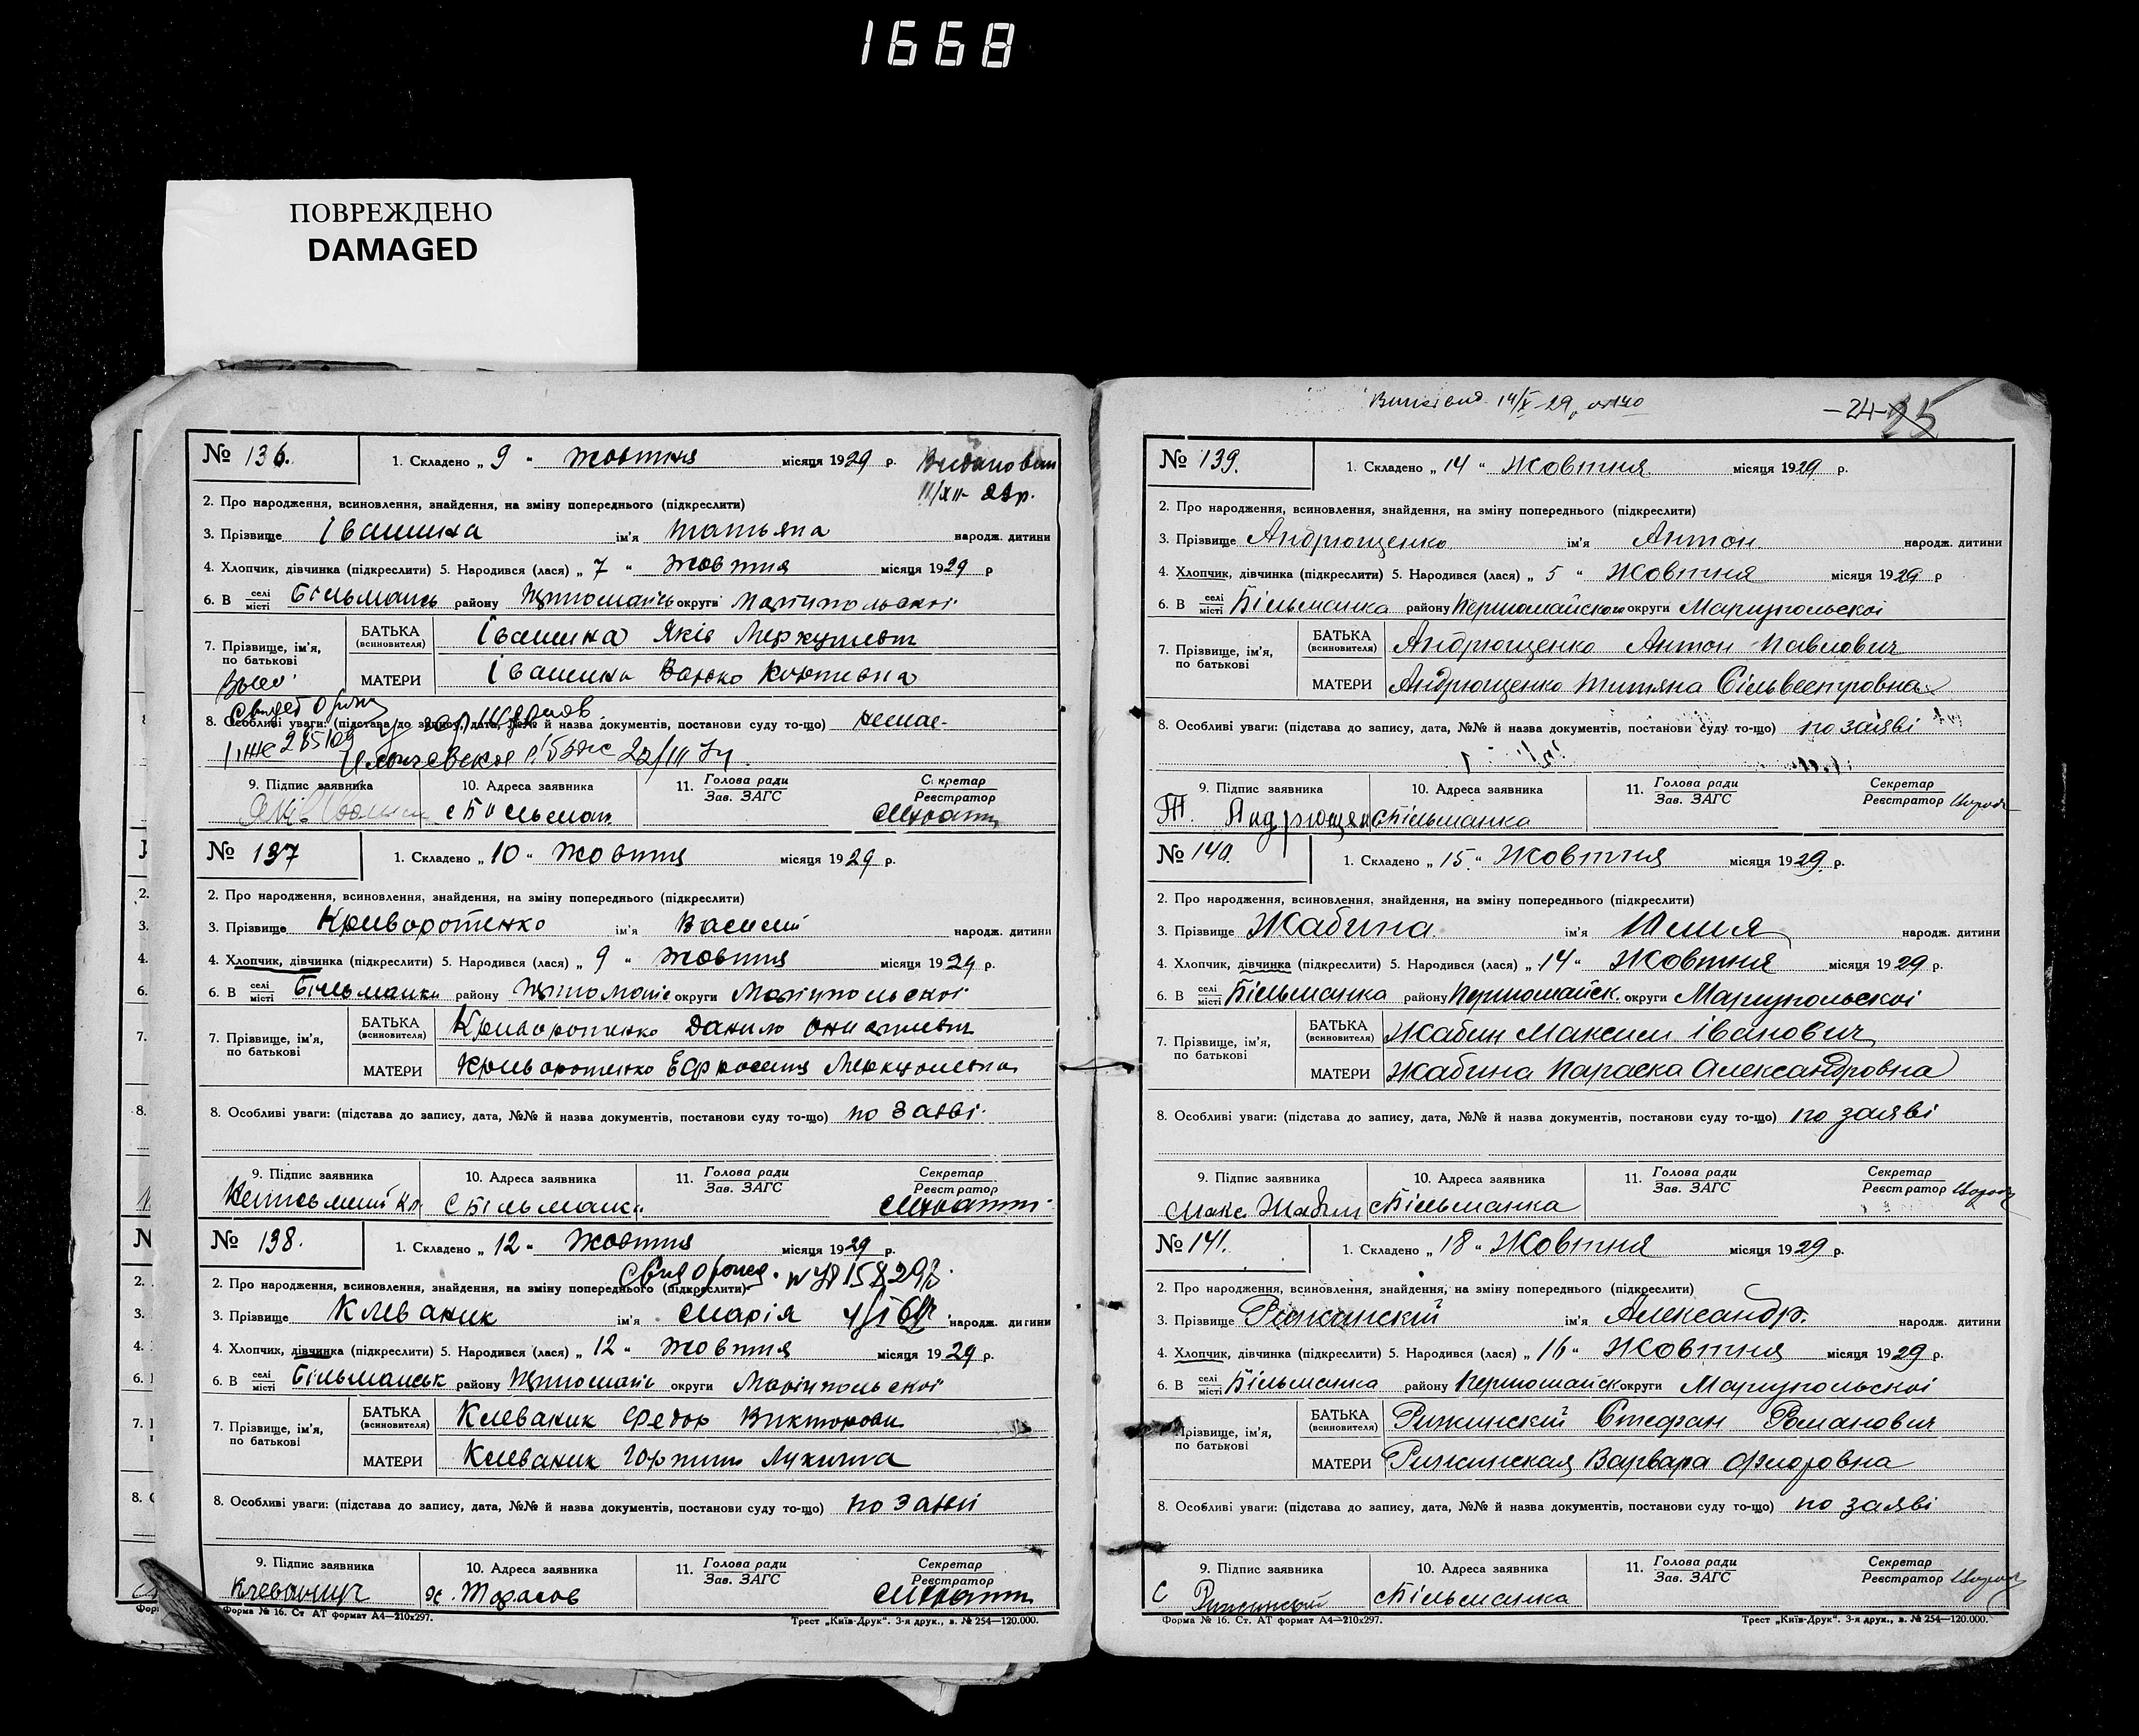 1668
ПОВРЕЖДЕНО
DAMAGED
№ 136.
1. Складено „ 9 “ жовтня місяця 1929 р.
11/XII- 29р.
2. Про народження, всиновлення, знайдення, на зміну попереднього (підкреслити)
3. Прізвище Івашина ім'я Татьяна народж. дитини
4. Хлопчик, дівчинка (підкреслити) 5. Народився (лася) „ 7 “ жовтня місяця 1929 р
6. В селі місті Більманка району округи Маріупольської
7. Прізвище, ім'я, по батькові
БАТЬКА (всиновителя) Івашина Яків Меркулевич
МАТЕРИ Івашина
8. Особливі уваги: (підстава до запису, дата, №№ й назва документів, постанови суду то-що) немає-
22/III
9. Підпис заявника 10. Адреса заявника 11. Голова ради Зав. ЗАГС Секретар Реєстратор
с Більман.
№ 137
1. Складено „ 10 “ жовтня місяця 1929 р.
2. Про народження, всиновлення, знайдення, на зміну попереднього (підкреслити)
3. Прізвище Криворотенко ім'я Василий народж. дитини
4. Хлопчик, дівчинка (підкреслити) 5. Народився (лася) „ 9 “ жовтня місяця 1929 р.
6. В селі місті Більманки району округи Маріупольської
7. Прізвище, ім'я, по батькові
БАТЬКА (всиновителя) Криворотенко Данило
МАТЕРИ Криворотенко Ефросиня Меркулевна
8. Особливі уваги: (підстава до запису, дата, №№ й назва документів, постанови суду то-що) по заяві.
9. Підпис заявника 10. Адреса заявника 11. Голова ради Зав. ЗАГС Секретар Реєстратор
с Більманки
№ 138.
1. Складено „ 12 “ жовтня місяця 1929 р.
2. Про народження, всиновлення, знайдення, на зміну попереднього (підкреслити)
3. Прізвище Клеваник ім'я Марія народж. дитини
4. Хлопчик, дівчинка (підкреслити) 5. Народився (лася) „ 12 “ жовтня місяця 1929 р.
6. В селі місті Більманськ району округи Маріупольської
7. Прізвище, ім'я, по батькові
БАТЬКА (всиновителя) Клеваник Федор Викторови
МАТЕРИ Клеваник Лукична
8. Особливі уваги: (підстава до запису, дата, №№ й назва документів, постанови суду то-що) по заяві
9. Підпис заявника 10. Адреса заявника 11. Голова ради Зав. ЗАГС Секретар Реєстратор
х. Тарасов
Форма № 16. Ст АТ формат А4—210х297. Трест „Київ-Друк“. 3-я друк., в. № 254—120.000.
14/X-29р
-24- 25
№ 139.
1. Складено „ 14 “ Жовтня місяця 1929 р.
2. Про народження, всиновлення, знайдення, на зміну попереднього (підкреслити)
3. Прізвище Андрющенко ім'я Антон народж. дитини
4. Хлопчик, дівчинка (підкреслити) 5. Народився (лася) „ 5 “ Жовтня місяця 1929 р
6. В селі місті Більманка району Первомайского округи Мариупольскоі
7. Прізвище, ім'я, по батькові
БАТЬКА (всиновителя) Андрющенко Антон Павлович
МАТЕРИ Андрющенко Титяна Сільвестровна
8. Особливі уваги: (підстава до запису, дата, №№ й назва документів, постанови суду то-що) по заяві
9. Підпис заявника 10. Адреса заявника 11. Голова ради Зав. ЗАГС Секретар Реєстратор
Т. Андрющен с Більманка
№ 140.
1. Складено „ 15. “ Жовтня місяця 1929 р.
2. Про народження, всиновлення, знайдення, на зміну попереднього (підкреслити)
3. Прізвище Жабина ім'я Юлия народж. дитини
4. Хлопчик, дівчинка (підкреслити) 5. Народився (лася) „ 14 “ Жовтня місяця 1929 р.
6. В селі місті Більманка району Первомайск. округи Мариупольскоі
7. Прізвище, ім'я, по батькові
БАТЬКА (всиновителя) Жабин Максим Іванович
МАТЕРИ Жабина Параска Александровна
8. Особливі уваги: (підстава до запису, дата, №№ й назва документів, постанови суду то-що) по заяві
9. Підпис заявника 10. Адреса заявника 11. Голова ради Зав. ЗАГС Секретар Реєстратор
Макс Жабин с Більманка
№ 141.
1. Складено „ 18 “ Жовтня місяця 1929 р.
2. Про народження, всиновлення, знайдення, на зміну попереднього (підкреслити)
3. Прізвище Рижинскій ім'я Александр. народж. дитини
4. Хлопчик, дівчинка (підкреслити) 5. Народився (лася) „ 16 “ Жовтня місяця 1929 р.
6. В селі місті Більманка району Первомайск округи Мариупольскоі
7. Прізвище, ім'я, по батькові
БАТЬКА (всиновителя) Рижинскій Стефан Романович
МАТЕРИ Рижинская Варвара Фиоровна
8. Особливі уваги: (підстава до запису, дата, №№ й назва документів, постанови суду то-що) по заяві
9. Підпис заявника 10. Адреса заявника 11. Голова ради Зав. ЗАГС Секретар Реєстратор
С Рижинский с Більманка
Форма № 16. Ст. АТ формат А4—210х297. Трест „Київ-Друк“. 3-я друк., в. № 254—120.000.